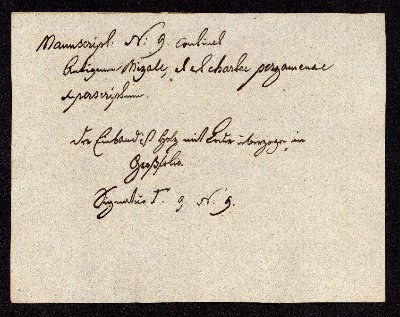 Manuscript: N: 9. continet
Antiquum Missale, et est chartae pergamenae
perscriptum.
Der Einband ist Holz mit Leder überzogen, in
Großfolio.
Signatur T. 9. N. 9.